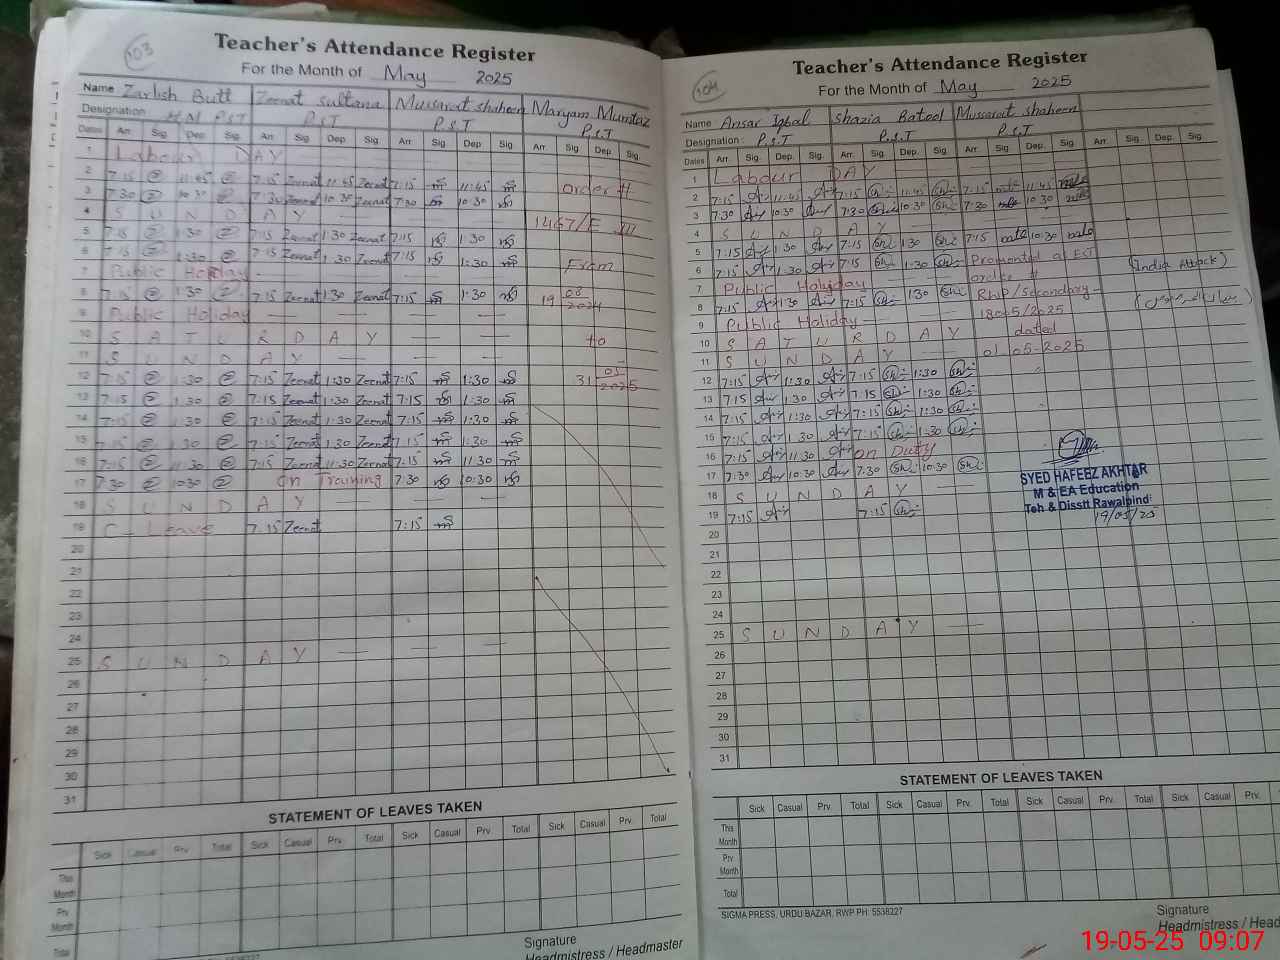 103
Teacher's Attendance Register
For the Month of May 2025
Name Zarlish Butt Zeenat sultana Mussarat shaheen Maryam Mumtaz
Designation H.M PST P.S.T P.S.T P.S.T
Dates Arr. Sig. Dep. Sig. Arr. Sig. Dep. Sig. Arr. Sig. Dep. Sig. Arr. Sig. Dep. Sig.
1 Labour DAY
2 7:15 11:45 7:15 Zeenat 11:45 Zeenat 7:15 11:45 order #
3 7:30 10:30 7:30 Zeenat 10:30 Zeenat 7:30 10:30
4 S U N D A Y 1467/E III
5 7:15 1:30 7:15 Zeenat 1:30 Zeenat 7:15 1:30
6 7:15 1:30 7:15 Zeenat 1:30 Zeenat 7:15 1:30 From
7 Public Holiday
8 7:15 1:30 7:15 Zeenat 1:30 Zeenat 7:15 1:30 19 08 2024
9 Public Holiday
10 S A T U R D A Y to
11 S U N D A Y
12 7:15 1:30 7:15 Zeenat 1:30 Zeenat 7:15 1:30 31 05 2025
13 7:15 1:30 7:15 Zeenat 1:30 Zeenat 7:15 1:30
14 7:15 1:30 7:15 Zeenat 1:30 Zeenat 7:15 1:30
15 7:15 1:30 7:15 Zeenat 1:30 Zeenat 7:15 1:30
16 7:15 11:30 7:15 Zeenat 11:30 Zeenat 7:15 11:30
17 7:30 10:30 On Training 7:30 10:30
18 S U N D A Y
19 C-Leave 7:15 Zeenat 7:15
20
21
22
23
24
25 S U N D A Y
26
27
28
29
30
31
STATEMENT OF LEAVES TAKEN
Sick Casual Prv. Total Sick Casual Prv. Total Sick Casual Prv. Total Sick Casual Prv. Total
This Month
Prv. Month
Total
Signature
Headmistress / Headmaster
104
Teacher's Attendance Register
For the Month of May 2025
Name Ansar Iqbal Shazia Batool Mussarat shaheen
Designation: P.S.T P.S.T P.S.T
Dates Arr. Sig. Dep. Sig. Arr. Sig. Dep. Sig. Arr. Sig. Dep. Sig. Arr. Sig. Dep. Sig.
1 Labour DAY
2 7:15 11:45 7:15 11:45 7:15 11:45
3 7:30 10:30 7:30 10:30 7:30 10:30
4 S U N D A Y
5 7:15 1:30 7:15 1:30 7:15 10:30
6 7:15 1:30 7:15 1:30 Promoted at EST
7 Public Holiday order # (India Attack)
8 7:15 1:30 7:15 1:30 RWP/Secondary-
9 Public Holiday 1805/2025
10 S A T U R D A Y dated
11 S U N D A Y 01.05-2025
12 7:15 1:30 7:15 1:30
13 7:15 1:30 7:15 1:30
14 7:15 1:30 7:15 1:30
15 7:15 1:30 7:15 1:30
16 7:15 11:30 On Duty
17 7:30 10:30 7:30 10:30
18 S U N D A Y
19 7:15 7:15
20
21
22
23
24
25 S U N D A Y
26
27
28
29
30
31
SYED HAFEEZ AKHTAR
M & EA Education
Teh & Disstt Rawalpindi
19/05/25
STATEMENT OF LEAVES TAKEN
Sick Casual Prv. Total Sick Casual Prv. Total Sick Casual Prv. Total Sick Casual Prv.
This Month
Prv Month
Total
SIGMA PRESS, URDU BAZAR, RWP PH: 5538227
Signature
Headmistress / Head
19-05-25 09:07